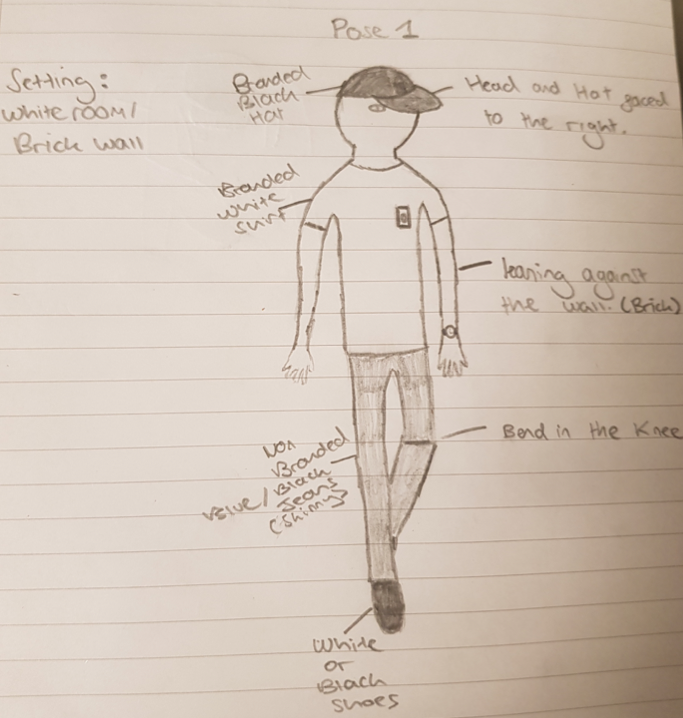 Pose 1
Setting:
White room/
Brick wall
Branded
Black
Hat
Head and Hat gaced
to the right.
Branded
white
shirt
leaning against
the wall. (Brick)
Bend in the Knee
Non
Branded
/ Black
Jeans
(Skinny)
White
or
Black
shoes